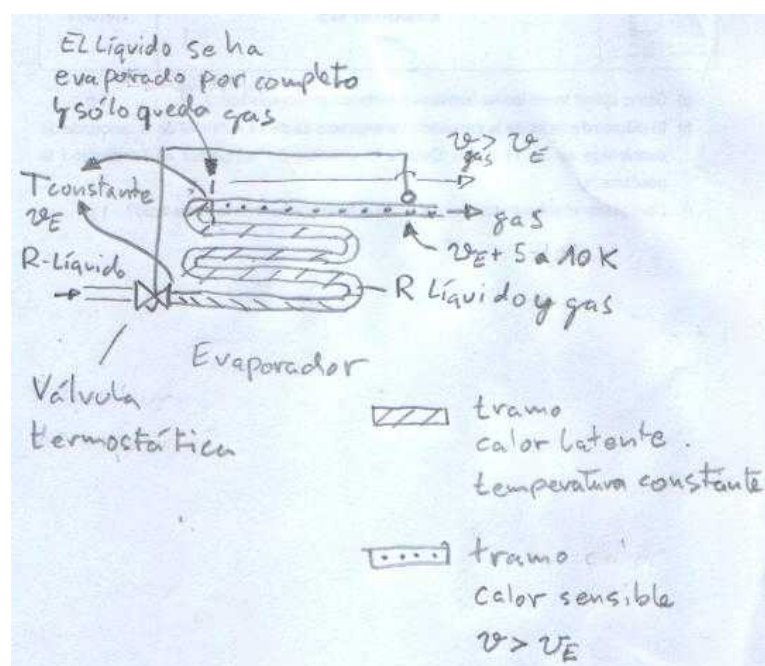 El Líquido se ha
evaporado por completo
y sólo queda gas
T constante
ϑE
R-Líquido
ϑgas > ϑE
gas
ϑE + 5 a 10 K
R Líquido y gas
Evaporador
Válvula
termostática
tramo
calor latente.
temperatura constante
tramo
calor sensible
ϑ > ϑE